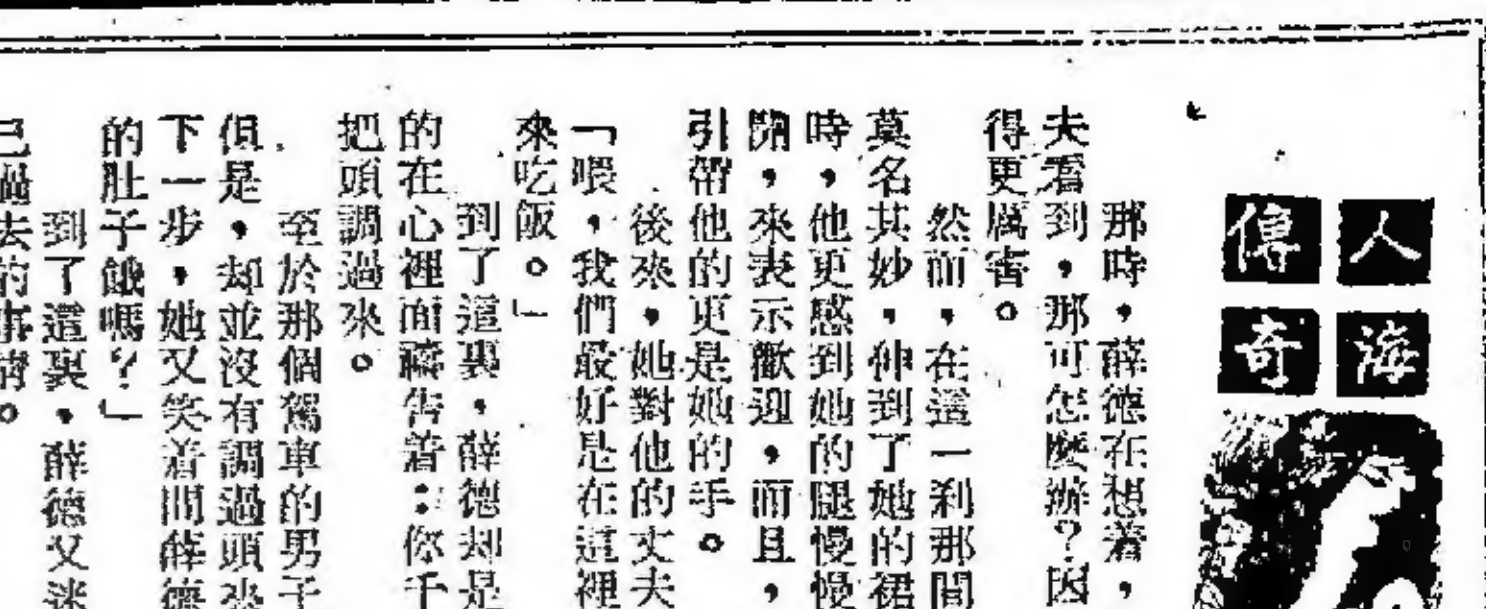 人海
傳奇
那時，薛德在想着，
夫看到，那可怎麼辦？因
得更厲害。
然而，在這一刹那間
莫名其妙，伸到了她的裙
時，他更感到她的腿慢慢
開，來表示歡迎，而且，
引帶他的更是她的手。
後來，她對他的丈夫
「喂，我們最好是在這裡
來吃飯。」
到了這裏，薛德却是
的在心裡面禱告着：你千
把頭調過來。
至於那個駕車的男子
但是，却並沒有調過頭來
下一步，她又笑着問薛德
的肚子餓嗎？」
到了這裏，薛德又迷
已過去的事情。